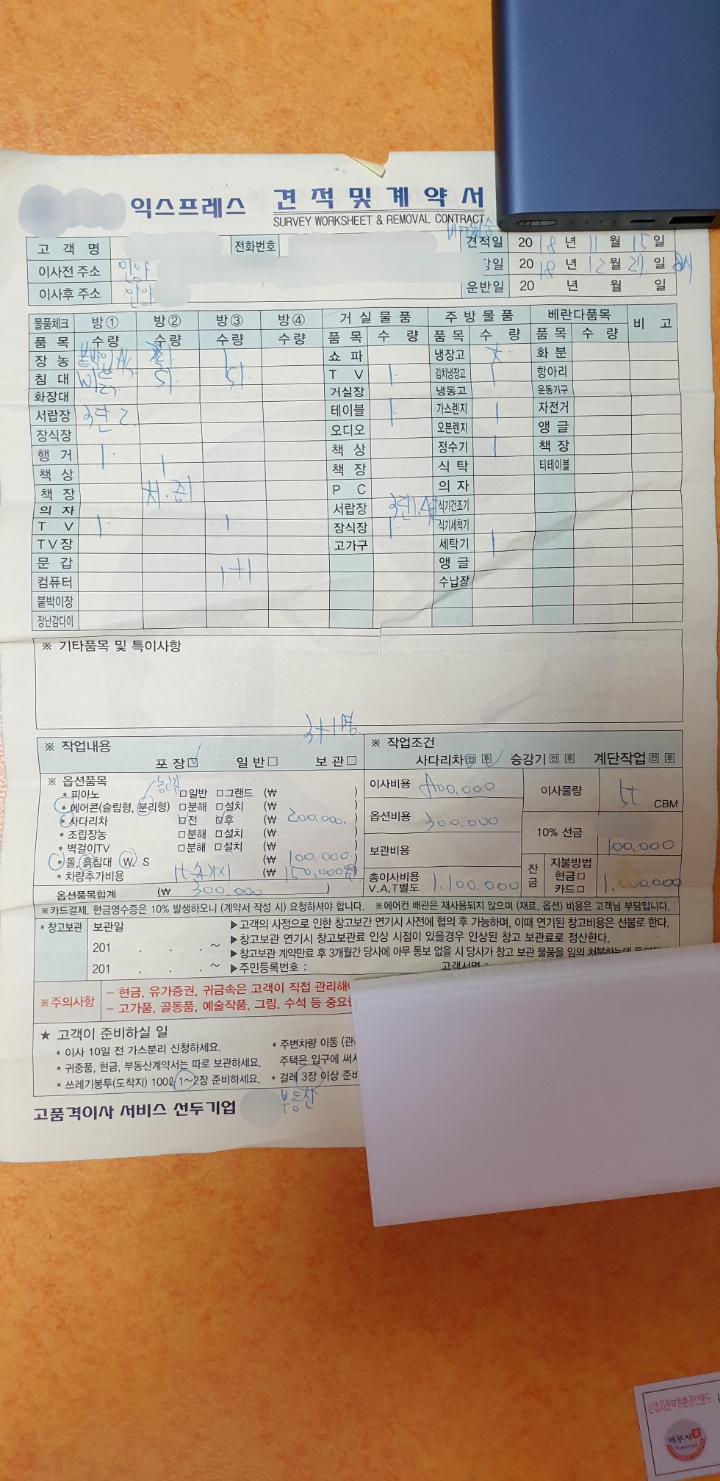 익스프레스 견적및계약서
SURVEY WORKSHEET & REMOVAL CONTRACT
고객명 전화번호 견적일 2018년 11월 15일
이사전 주소 안양 2018년 12월 일
이사후 주소 안양 운반일 20 년 월 일
물품체크 방① 방② 방③ 방④ 거실물품 주방물품 베란다품목 비고
품목 수량 수량 수량 수량 품목 수량 품목 수량 품목 수량
장농 1 쇼파 냉장고 화분
침대 W S1 S1 T V 1 김치냉장고 1 항아리
화장대 거실장 냉동고 운동기구
서랍장 3단 2 테이블 1 가스렌지 1 자전거
장식장 오디오 오븐렌지 앵글
행거 1 책상 정수기 1 책장
책상 1 책장 식탁 티테이블
책장 P C 의자
의자 서랍장 식기건조기
T V 1 1 장식장 1 식기세척기
TV장 고가구 세탁기 1
문갑 앵글
컴퓨터 1+1 수납장
붙박이장
장난감다이
※ 기타품목 및 특이사항
3+1명
※ 작업내용 포장☑ 일반□ 보관□ ※ 작업조건 사다리차전후 승강기전후 계단작업전후
※ 옵션품목
* 피아노 □일반 □그랜드 (₩ )
* 에어콘(슬림형, 분리형) □분해 □설치 (₩ )
* 사다리차 □전 ☑후 (₩ 200.000. )
* 조립장농 □분해 □설치 (₩ )
* 벽걸이TV □분해 □설치 (₩ )
* 돌,흙침대 W. S (₩ 100.000. )
* 차량추가비용 (₩ 150,000 )
옵션품목합계 (₩ 300.000
이사비용 800.000 이사물량 5t CBM
옵션비용 300.000 10% 선금 100.000
보관비용
총이사비용 V.A.T별도 1.100.000 잔금 지불방법 현금□ 카드□
※카드결제, 현금영수증은 10% 발생하오니 (계약서 작성 시) 요청하셔야 합니다. ※에어컨 배관은 재사용되지 않으며 (재료, 옵션) 비용은 고객님 부담입니다.
* 창고보관 보관일 ▶고객의 사정으로 인한 창고보간 연기시 사전에 협의 후 가능하며, 이때 연기된 창고비용은 선불로 한다.
201 . . . ~ ▶창고보관 연기시 창고보관료 인상 시점이 있을경우 인상된 창고 보관료로 정산한다.
▶창고보관 계약만료 후 3개월간 당사에 아무 통보 없을 시 당사가 창고 보관 물품을 임의 처분하는데
201 . . . ~ ▶주민등록번호 : 고객서명 :
※주의사항 – 현금, 유가증권, 귀금속은 고객이 직접 관리해
– 고가품, 골동품, 예술작품, 그림, 수석 등 중요
★ 고객이 준비하실 일
* 이사 10일 전 가스분리 신청하세요. * 주변차량 이동 (관
* 귀중품, 현금, 부동산계약서는 따로 보관하세요. 주택은 입구에 써서
* 쓰레기봉투(도착지) 100ℓ 1~2장 준비하세요. * 걸레 3장 이상 준비
고품격이사 서비스 선두기업 부동산